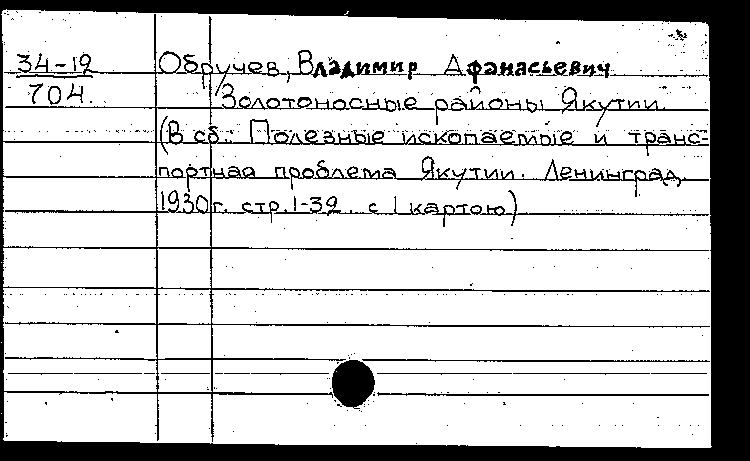 34-12
704.
Обручев, Владимир Афанасьевич
Золотоносные районы Якутии.
(В сб.: Полезные ископаемые и транс-
портная проблема Якутии. Ленинград.
1930г. стр.1-32. с 1 картою)